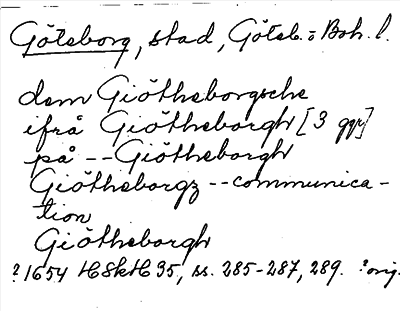 Göteborg, stad, Göteb. o Boh. l.
dem Giötheborgsche
ifrå Giötheborgh [3 ggr]
på -- Giötheborgh
Giötheborgz -- communica-
tion
Giötheborgh
?1654 HSkH 35, ss. 285-287, 289. ?orig.